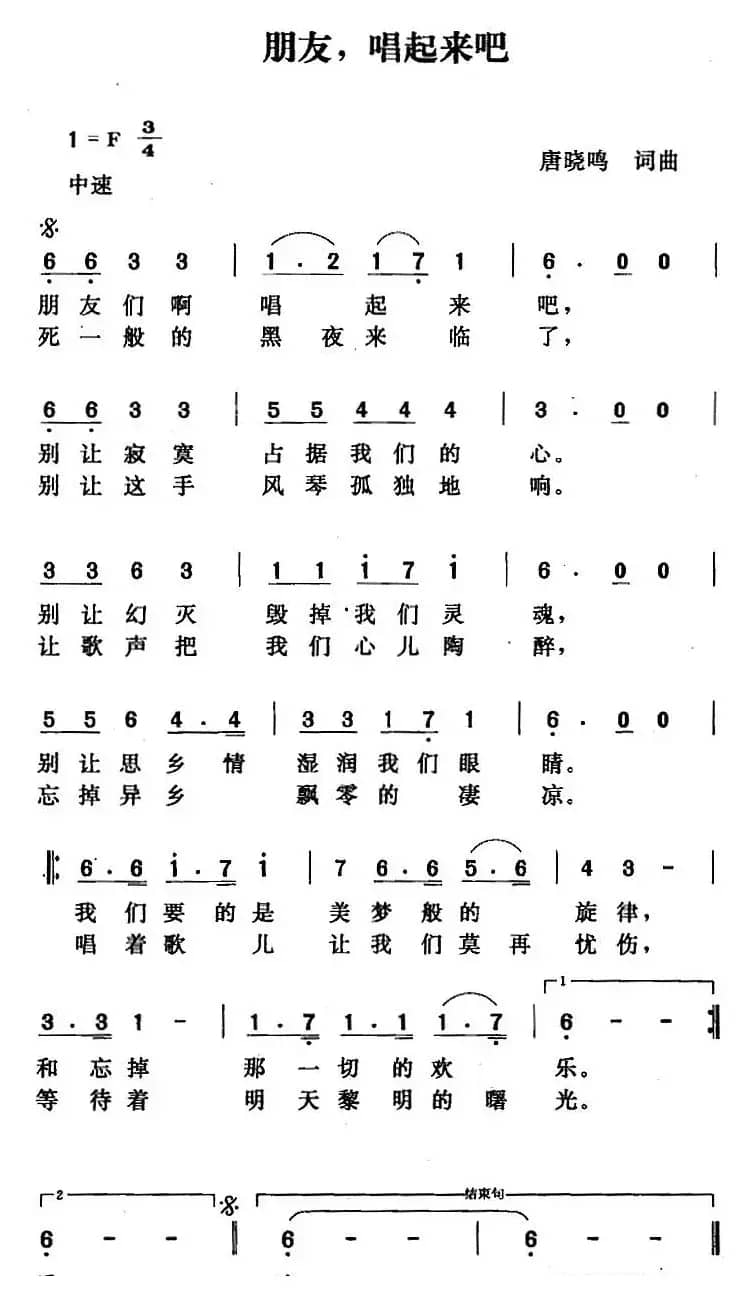 朋友，唱起来吧
1=F 3/4
唐晓鸣 词曲
中速
6 6 3 3 | 1 · 2 1 7 1 | 6 · 0 0 |
朋友们啊 唱起来吧，
死一般的 黑夜来临了，
6 6 3 3 | 5 5 4 4 4 | 3 · 0 0 |
别让寂寞 占据我们的心。
别让这手 风琴孤独地响。
3 3 6 3 | 1 1 1 7 1 | 6 · 0 0 |
别让幻灭 毁掉我们灵魂，
让歌声把 我们心儿陶醉，
5 5 6 4 · 4 | 3 3 1 7 1 | 6 · 0 0 |
别让思乡情 湿润我们眼睛。
忘掉异乡 飘零的凄凉。
6 · 6 1 · 7 1 | 7 6 · 6 5 · 6 | 4 3 - |
我们要的是 美梦般的旋律，
唱着歌儿 让我们莫再忧伤，
1
3 · 3 1 - | 1 · 7 1 · 1 1 · 7 | 6 - -
和忘掉 那一切的欢乐。
等待着 明天黎明的曙光。
2 结束句
6 - - 6 - - | 6 - -